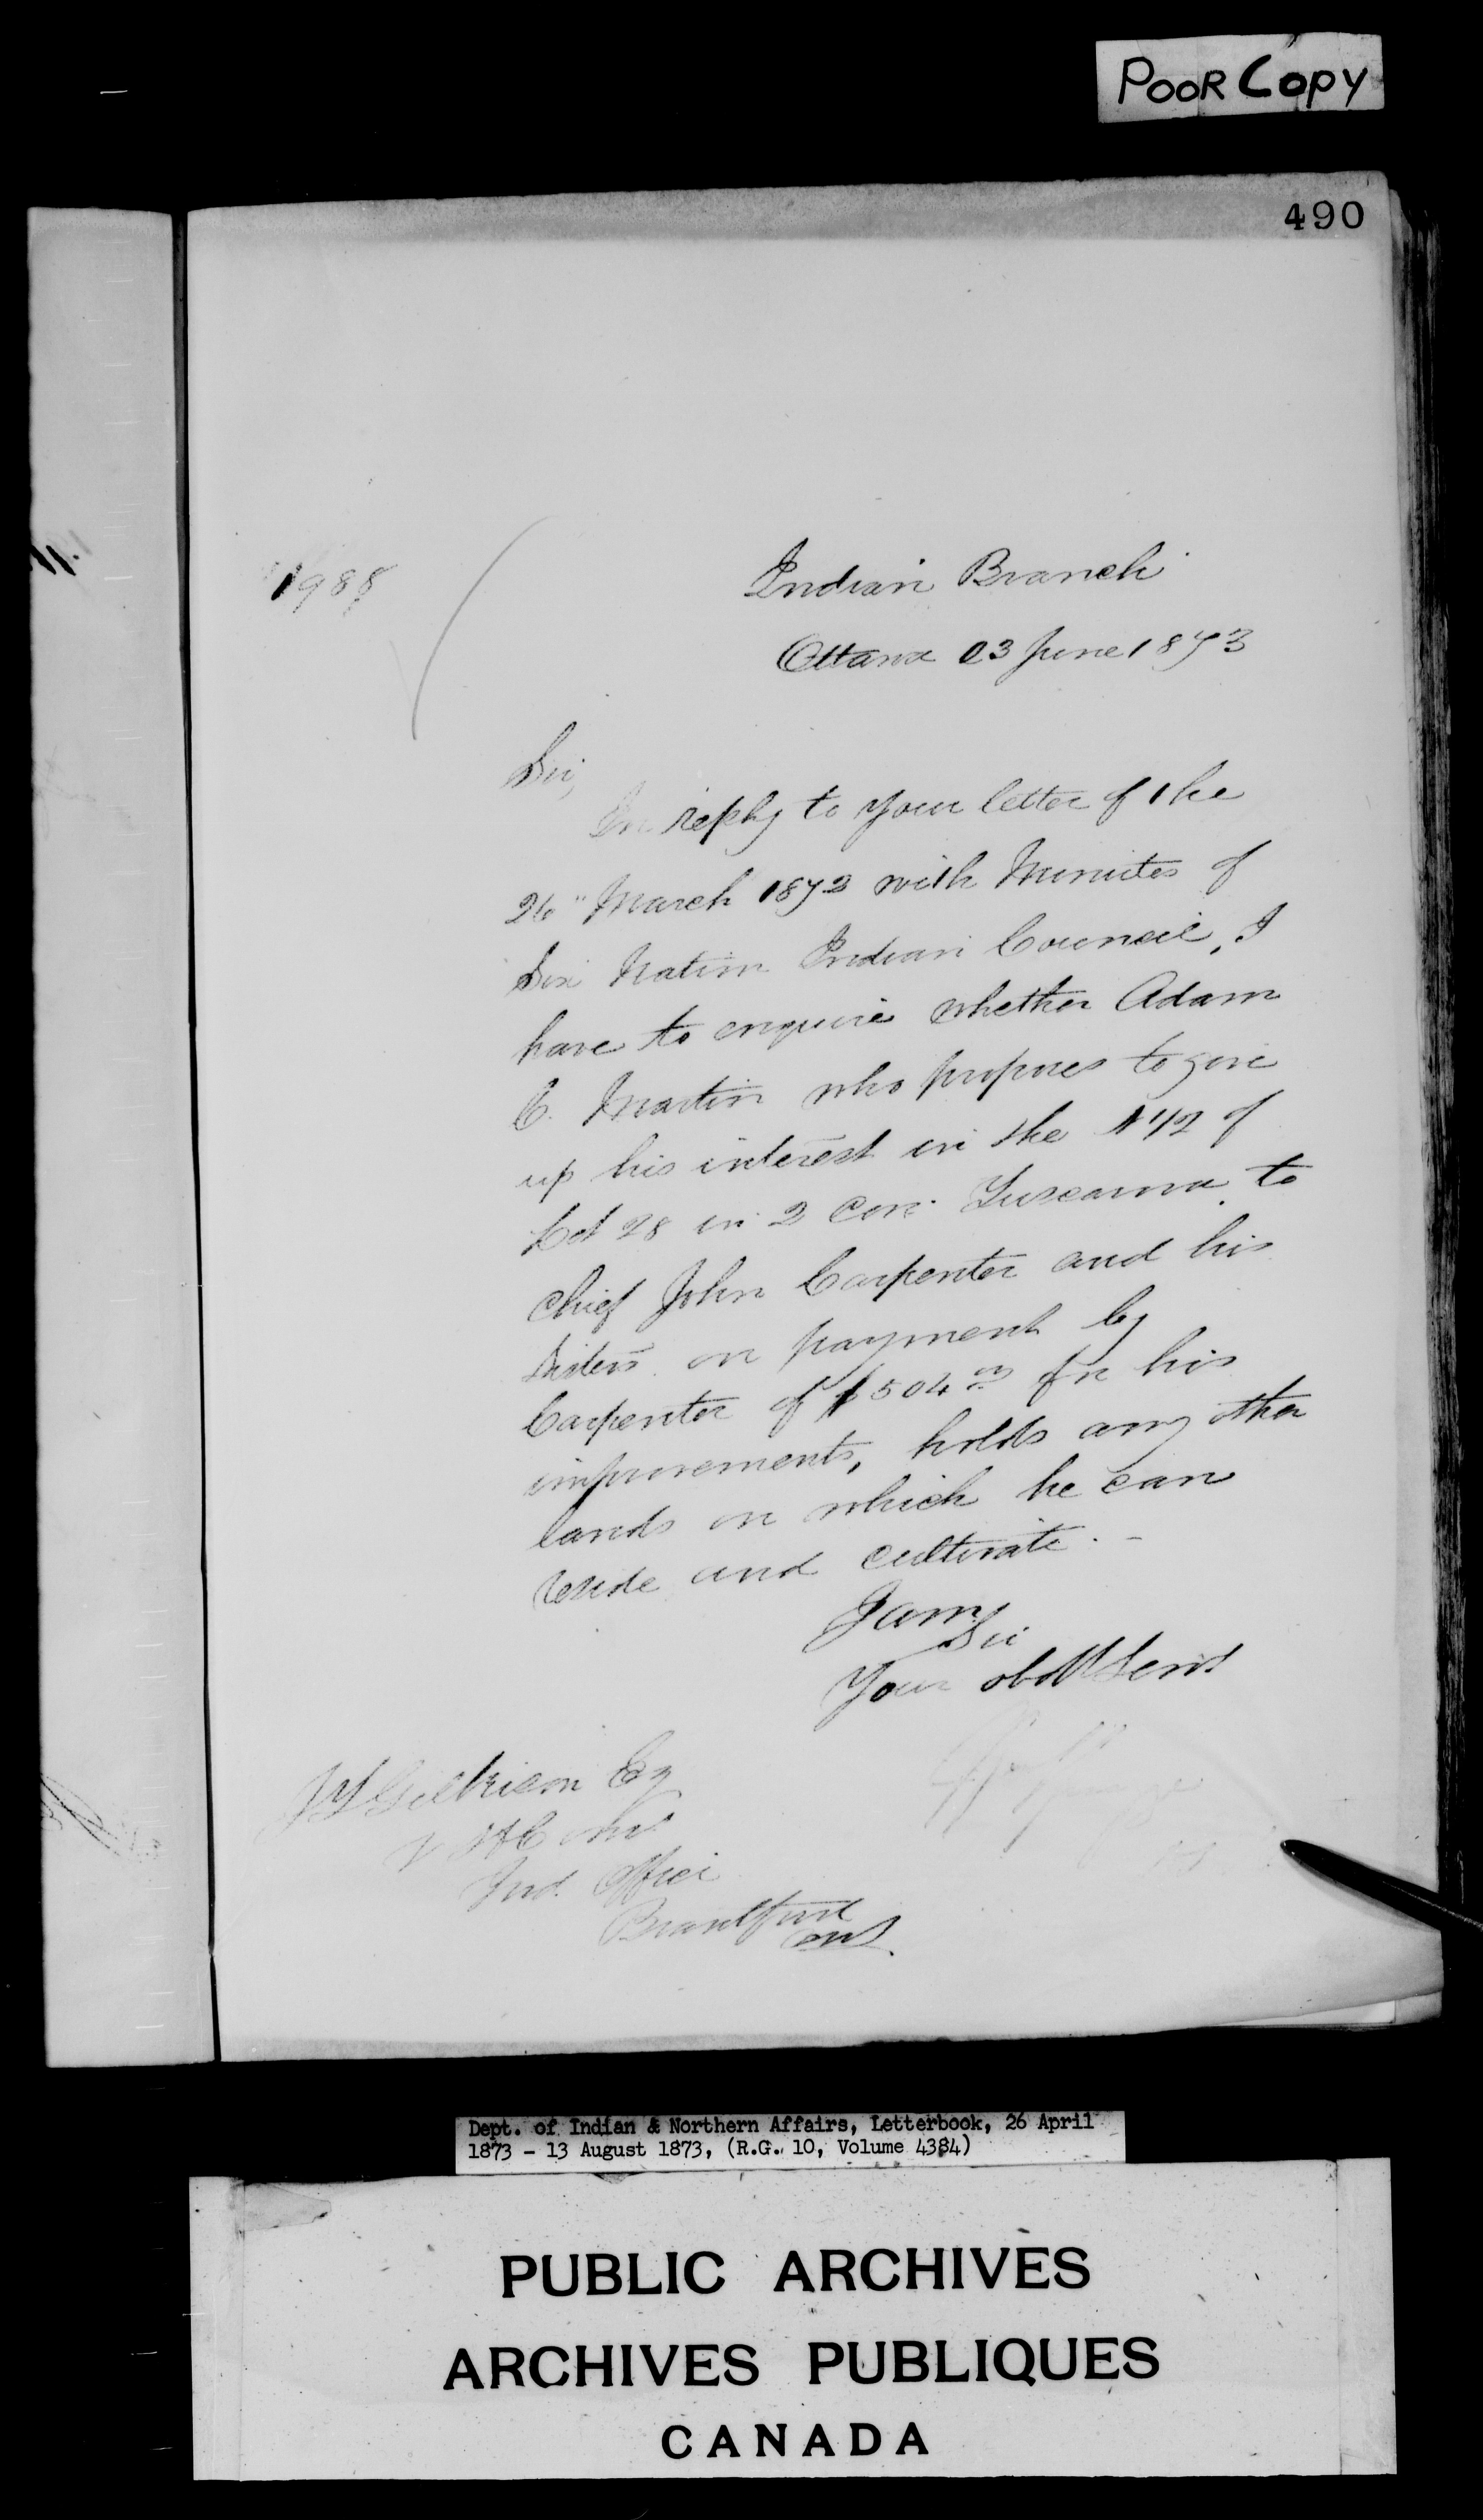 POOR COPY
490
1988
Indian Branch
Ottawa 23 June 1873
Sir,
In reply to your letter of the
26" March 1873 with Minutes of
Six Nation Indian Council, I
have to enquire whether Adam
C. Martin who proposes to give
up his interest in the N 1/2 of
Lot 28 in 2 Con. Tuscarora to
Chief John Carpenter and his
Sisters on payment by
Carpenter of $504 00 for his
improvements, holds any other
lands on which he can
reside and cultivate. -
I am
Sir
Your obdt Servt
J T Gilkison Esq
V S & Comr
Ind. Office
Brantford
Ont
Dept. of Indian & Northern Affairs, Letterbook, 26 April
1873 - 13 August 1873, (R.G. 10, Volume 4384)
PUBLIC ARCHIVES
ARCHIVES PUBLIQUES
CANADA